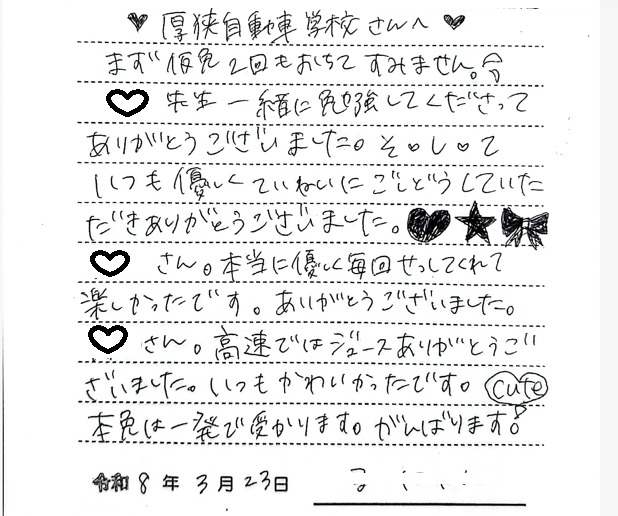 ♥ 厚狭自動車学校さんへ ♥
まず仮免2回もおちてすみません。
♡ 先生 一緒に勉強してくださって
ありがとうございました。そ・し・て
いつも優しくていねいにごしどうしていた
だきありがとうございました。♥★
♡ さん。本当に優しく毎回せっしてくれて
楽しかったです。ありがとうございました。
♡ さん。高速ではジュースありがとうご
ざいました。いつもかわいかったです。cute
本免は一発で受かります。がんばります!
令和 8 年 3 月 23日